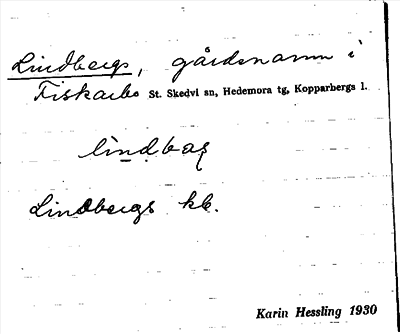 Lindbergs, gårdsnamn i
Fiskarbo St. Skedvi sn, Hedemora tg, Kopparbergs l.
Lindbergs kb.
Karin Hessling 1930